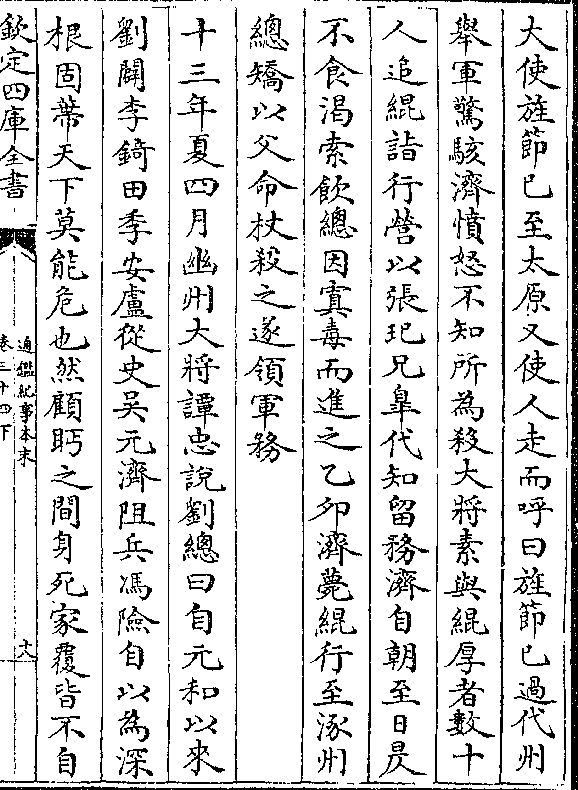 大使旌節已至太原又使人走而呼曰旌節已過代州
舉軍驚駭濟憤怒不知所為殺大將素與緄厚者數十
人追緄詣行營以張玘兄臯代知留務濟自朝至日昃
不食渴索飲總因寘毒而進之乙卯濟薨緄行至涿州
總矯以父命杖殺之遂領軍務
十三年夏四月幽州大將譚忠說劉總曰自元和以來
劉闢李錡田季安盧從史吳元濟阻兵馮險自以為深
根固蒂天下莫能危也然顧眄之間身死家覆皆不自
欽定四庫全書
通鑑紀事本末
卷三十四下
十八